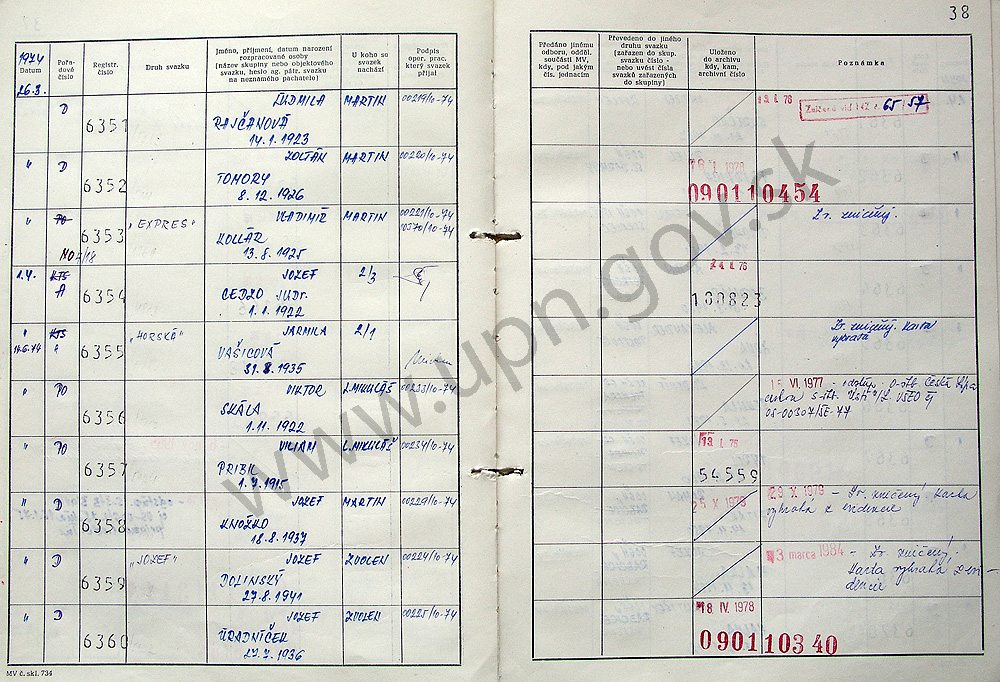 38
1974
Datum
Pořa-
dové
číslo
Registr.
číslo
Druh svazku
Jméno, příjmení, datum narození
rozpracované osoby
(název skupiny nebo objektového
svazku, heslo ag. pátr. svazku
na neznámého pachatele)
U koho se
svazek
nachází
Podpis
oper. prac.
který svazek
přijal
Předáno jinému
odboru, odděl.
součásti MV,
kdy, pod jakým
čís. jednacím
Převedeno do jiného
druhu svazku
(zařazen do skup.
svazku číslo -
nebo uvést čísla
svazků zařazených
do skupiny)
Uloženo
do archivu
kdy, kam,
archivní číslo
Poznámka
26.3. D 6351 ĽUDMILA MARTIN 00219/10-74
RAJČANOVÁ
14.1.1923
65 57
" D 6352 ZOLTÁN MARTIN 00220/10-74
TOMORY
8.12.1926
1978
090110454
" PO 6353 „EXPRES" VLADIMÍR MARTIN 00221/10-74
KOLLÁR
13.8.1925
Zv. zničený.
1.4. KTS 6354 JOZEF 2/3
A CEDZO JUDr.
1.1.1922
100823
" KTS 6355 „HORSKÁ" JARMILA 2/1
11.6.74 "
VAŠICOVÁ
31.8.1935
Zv. zničený. Karta
" PO 6356 VIKTOR L. MIKULÁŠ 00233/10-74
SKÁLA
1.11.1922
15 VI. 1977
" PO 6357 VILIAM L. MIKULÁŠ 00234/10-74
PRIBIL
1.7.1915
54559
" D 6358 JOZEF MARTIN 00229/10-74
KNOŽKO
18.8.1937
25 X 1978
28 X 1978 - Zv. zničený karta
vybratá z evidencie
" D 6359 „JOZEF" JOZEF ZVOLEN 00224/10-74
DOLINSKÝ
27.8.1941
3 marca 1984 - Zv. zničený.
Karta vybratá z evi-
dencie
" D 6360 JOZEF ZVOLEN 00225/10-74
ÚRADNÍČEK
27.7.1936
18 IV. 1978
090110340
MV č. skl. 734
www.upn.gov.sk